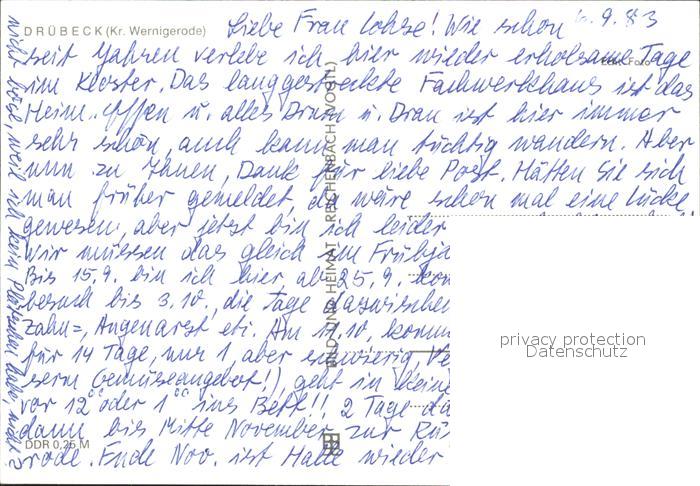 DRÜBECK (Kr. Wernigerode) Liebe Frau Lohse! Wie schon 6.9.83
seit Jahren verlebe ich hier wieder erholsame Tage
Echt Foto
im Kloster. Das langgestreckte Fachwerkhaus ist das
Heim. Essen u. alles Drum u. Dran ist hier immer
sehr schön, auch kann man tüchtig wandern. Aber
nun zu Ihnen, Dank für liebe Post. Hätten Sie sich
man früher gemeldet, da wäre schon mal eine Lücke
gewesen, aber jetzt bin ich leider
Wir müssen das gleich im Frühja
Bis 15.9. bin ich hier, ab 25.9. kom
besuch bis 3.10., die Tage dazwischen
Zahn=, Augenarzt etc. Am 11.10. komm
für 14 Tage, nur 1, aber schwierig, Ve
sern Gemüseangebot!), geht in kleine
vor 12°° oder 1°° ins Bett!! 2 Tage da
dann bis Mitte November zur
DDR 0,25 M
rode. Ende Nov. ist Halle wieder
BILD UND HEIMAT REICHENBACH (VOGTL)
weil ich kein Plätzchen habe, nicht?
privacy protection
Datenschutz